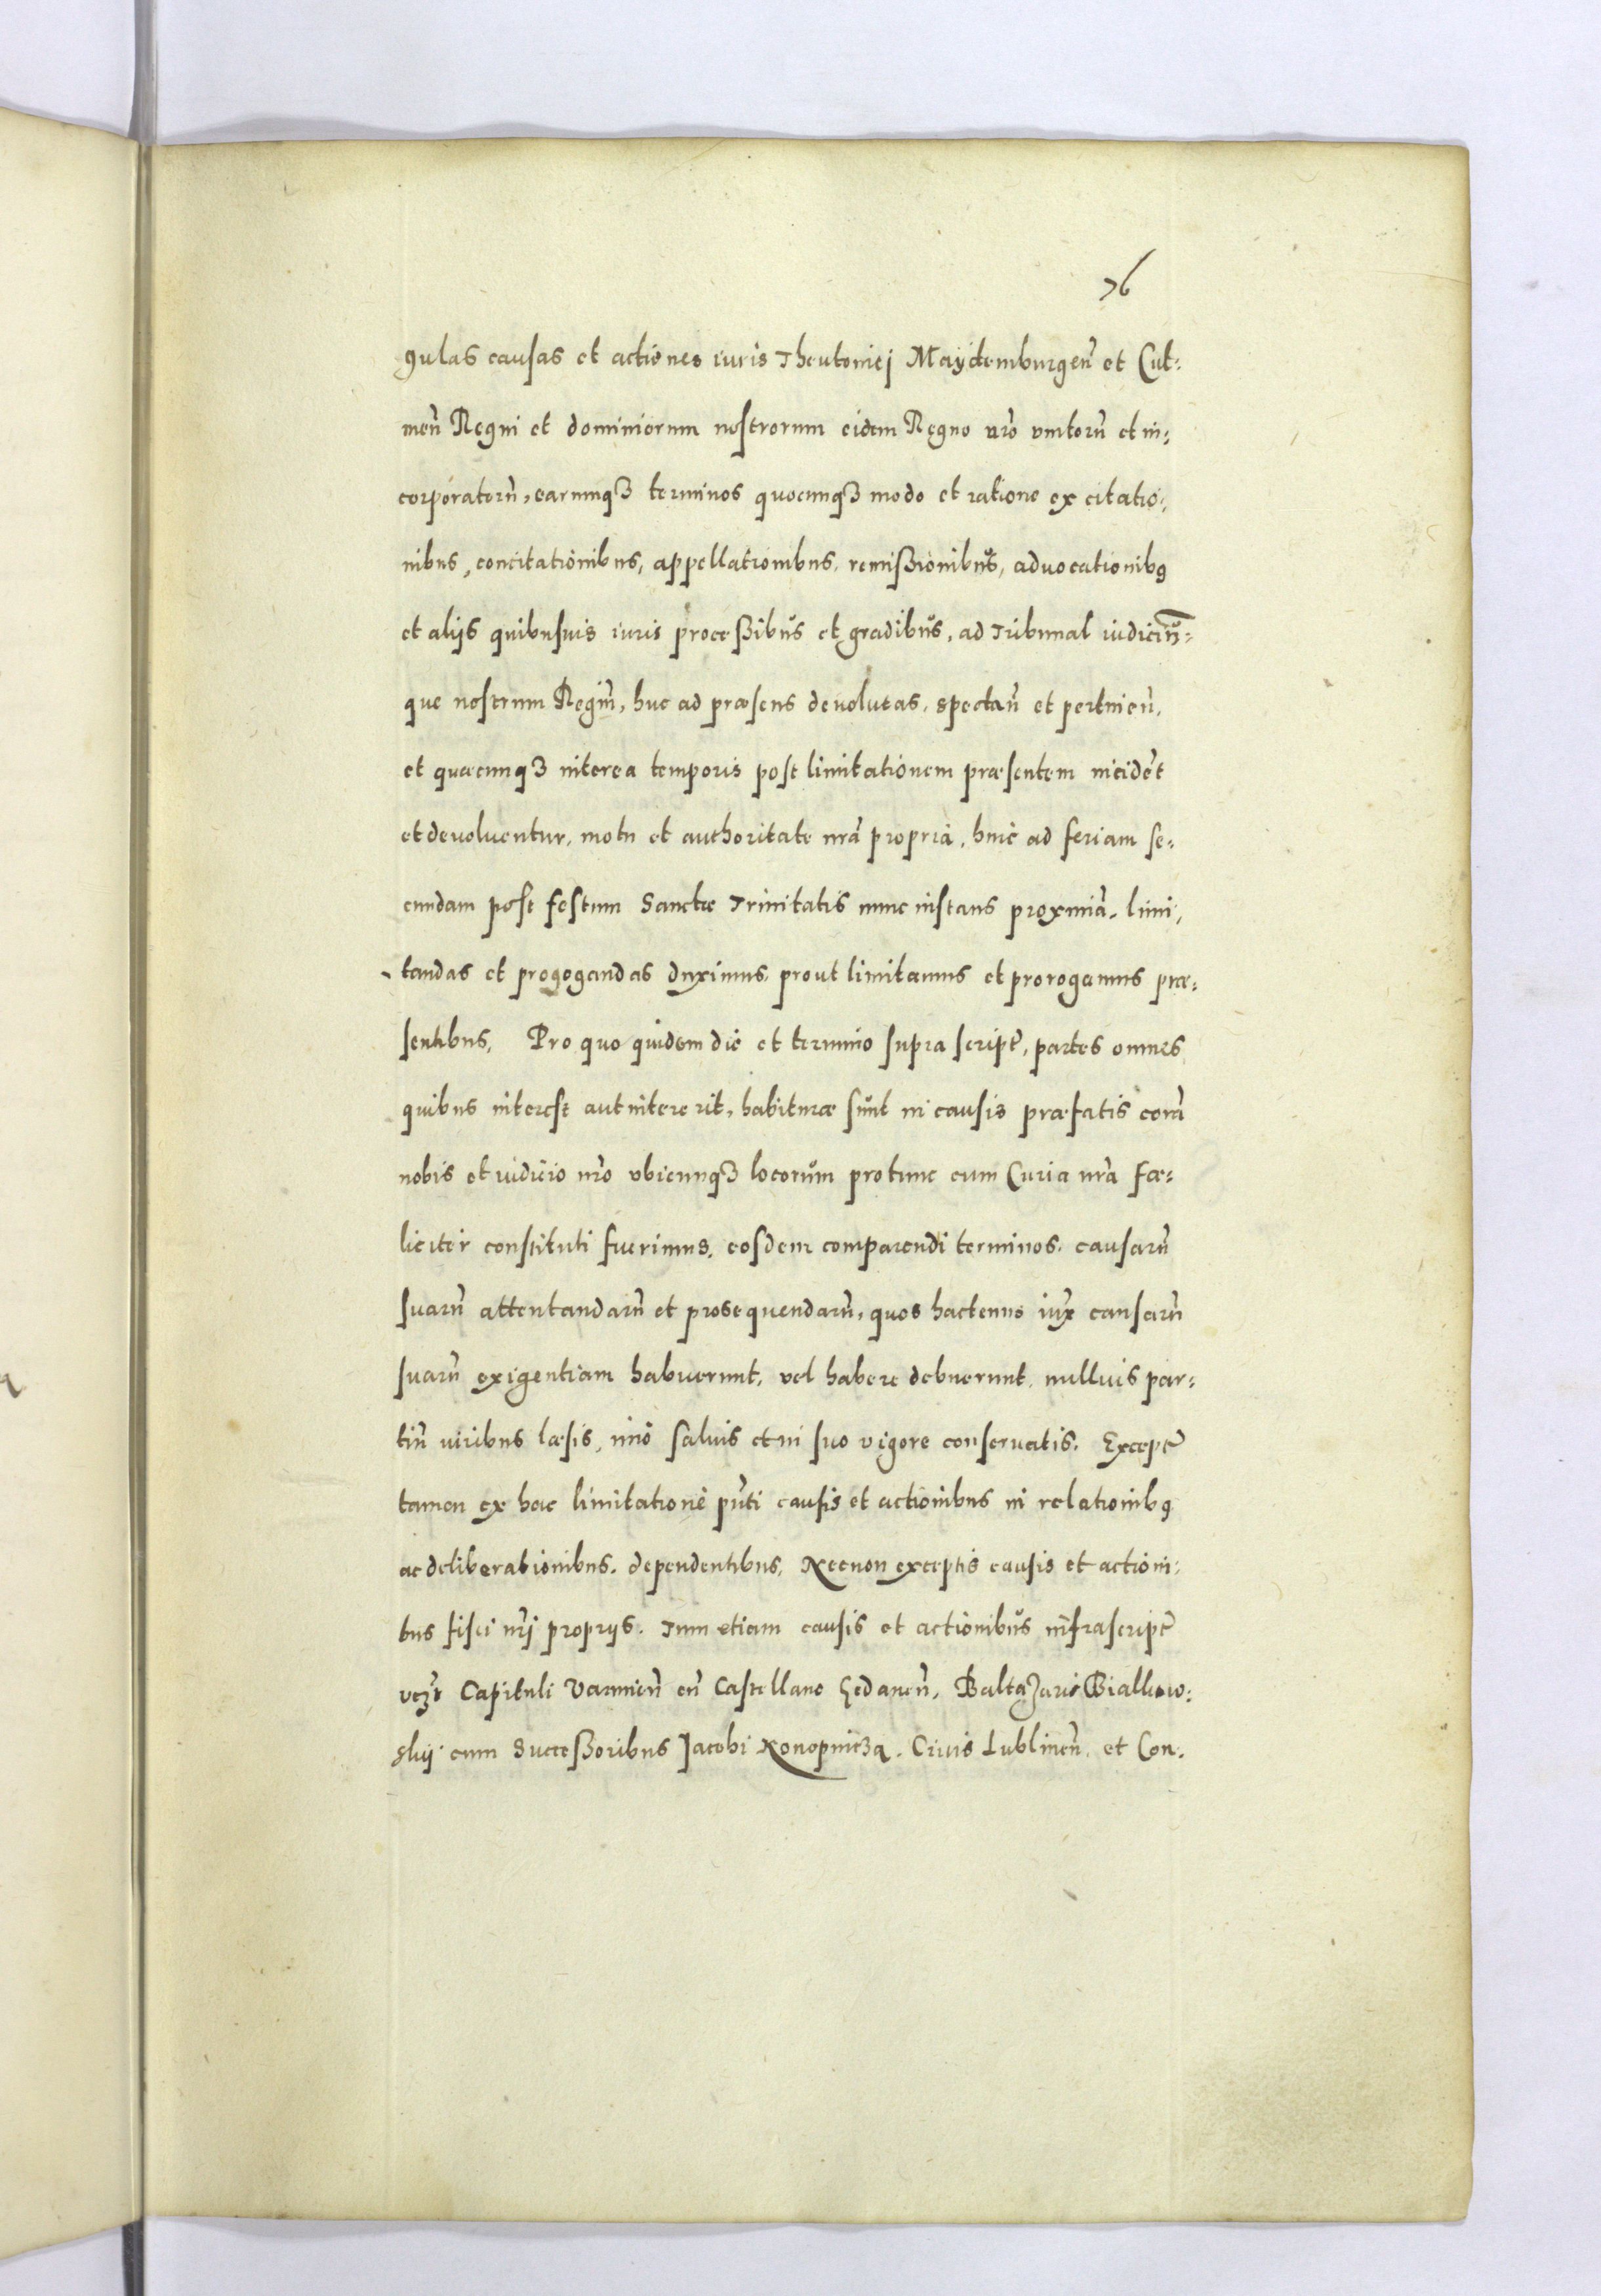 76
gulas causas et actiones iuris Theutonicj Maydemburgeñ et Cul:
meñ Regni et dominiorum nostrorum eidem Regno nr̃o vnitorũ et in:
corporatorũ, earumqȝ terminos quocunqȝ modo et ratione ex citatio:
nibus, concitationibus, appellationibus, remißionibus, aduocationibꝰ
et alijs quibusuis iuris proceßibus et gradibus, ad Tribunal iudiciũ:
que nostrum Regiũ, huc ad præsens deuolutas, spectañ et pertineñ,
et quæcunqȝ interea temporis post limitationem præsentem incidẽt
et deuoluentur, motu et authoritate nrã propria, hinc ad feriam se:
cundam post festum Sanctæ Trinitatis nunc instans proximã, limi:
tandas et progogandas duximus, prout limitamus et prorogamus præ:
sentibus, Pro quo quidem die et termino supra script̃, partes omnes
quibus interest aut intererit, habituræ sunt in causis præfatis corã
nobis et iudicio nr̃o vbicunqȝ locorum protunc cum Curia nrã fæ:
liciter constituti fuerimus, eosdem comparendi terminos, causarũ
suarũ attentandarũ et prosequendarũ, quos hactenus iux̃ causarũ
suarũ exigentiam habuerunt, vel habere debuerunt, nulluis par:
tiũ iuribus læsis, imo saluis et in suo vigore conseruatis. Except̃
tamen ex hac limitatione pñti causis et actionibus in relationibꝰ
ac deliberationibus dependentibus, Necnon exceptis causis et actioni:
bus fisci nr̃j proprijs. Tum etiam causis et actionibus infrascript̃
vcȝt Capituli Varmieñ cũ Castellano Gedaneñ, Baltazaris Biallow:
skij cum Succeßoribus Jacobi Konopnicza. Ciuis Lublineñ, et Con: